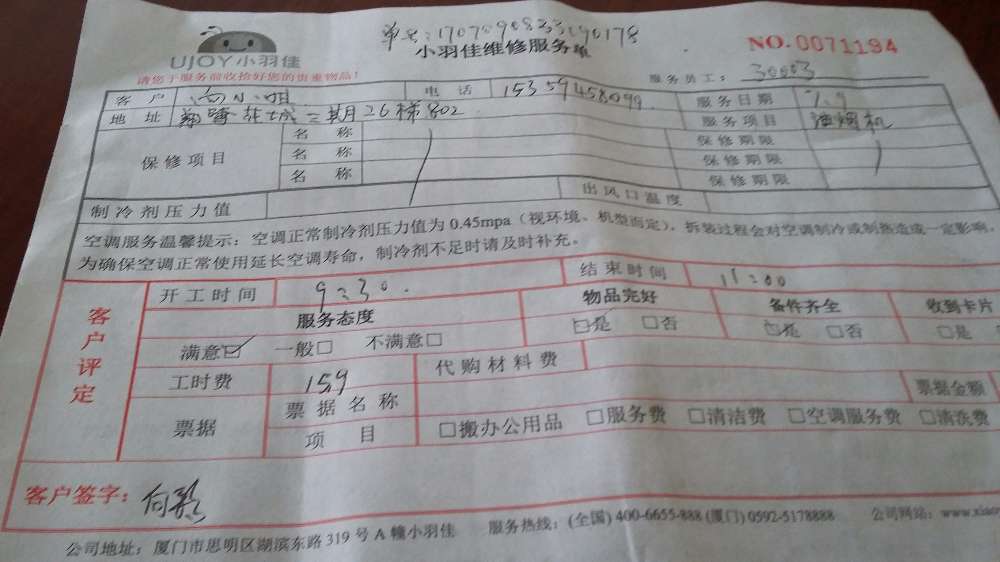 单号:17070908233290178
UJOY小羽佳
小羽佳维修服务单
NO.0071194
请您于服务前收拾好您的贵重物品!
服务员工: 30003
客户 向小姐 电话 15359458099 服务日期 7.9
地址 二期26梯802 服务项目 油烟机
保修项目 名称 保修期限
名称 保修期限
名称 保修期限
制冷剂压力值 出风口温度
空调服务温馨提示:空调正常制冷剂压力值为0.45mpa(视环境、机型而定),拆装过程会对空调制冷或制热造成一定影响,
为确保空调正常使用延长空调寿命,制冷剂不足时请及时补充。
客户评定
开工时间 9:30. 结束时间 11:00
服务态度 物品完好 备件齐全 收到卡片
满意☑ 一般□ 不满意□ □是 □否 □是 □否 □是
工时费 159 代购材料费
票据 票据名称 票据金额
项目 □搬办公用品 □服务费 □清洁费 □空调服务费 □清洗费
客户签字: 向
公司地址:厦门市思明区湖滨东路319号A幢小羽佳 服务热线:(全国)400-6655-888(厦门)0592-5178888 公司网站:www.xiao